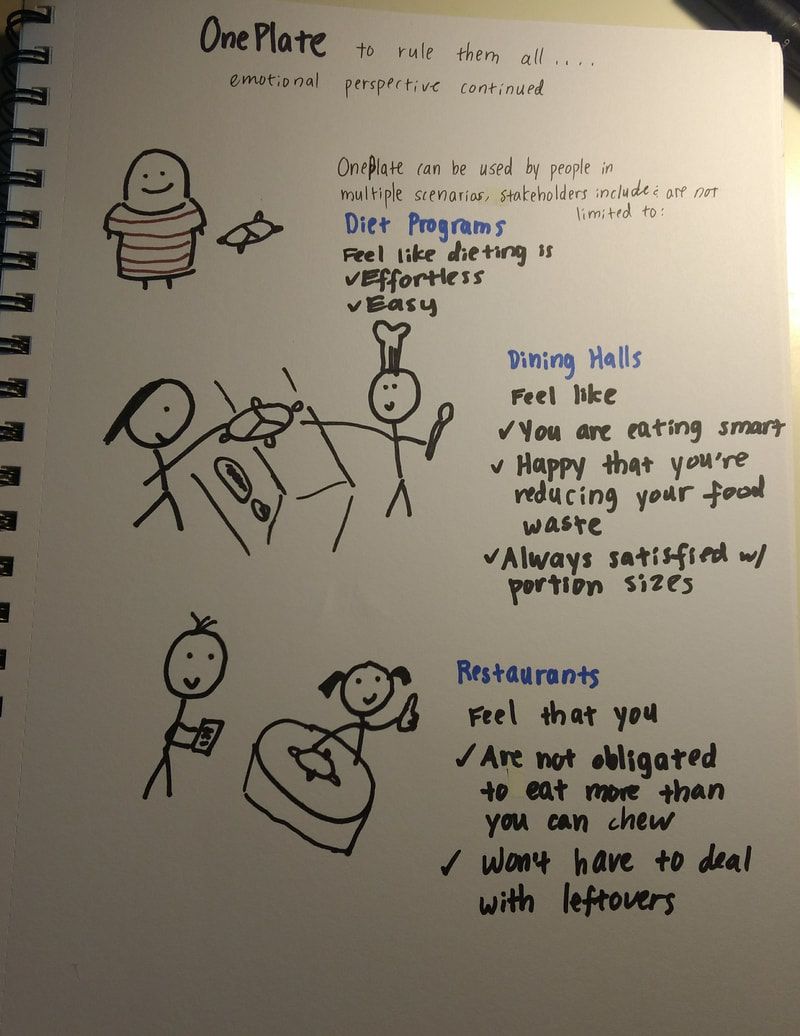 OnePlate to rule them all ....
emotional perspective continued
OnePlate can be used by people in
multiple scenarios, stakeholders include & are not
limited to:
Diet Programs
Feel like dieting is
✓Effortless
✓Easy
Dining Halls
Feel like
✓You are eating smart
✓Happy that you're
reducing your food
waste
✓Always satisfied w/
portion sizes
Restaurants
Feel that you
✓Are not obligated
to eat more than
you can chew
✓Won't have to deal
with leftovers